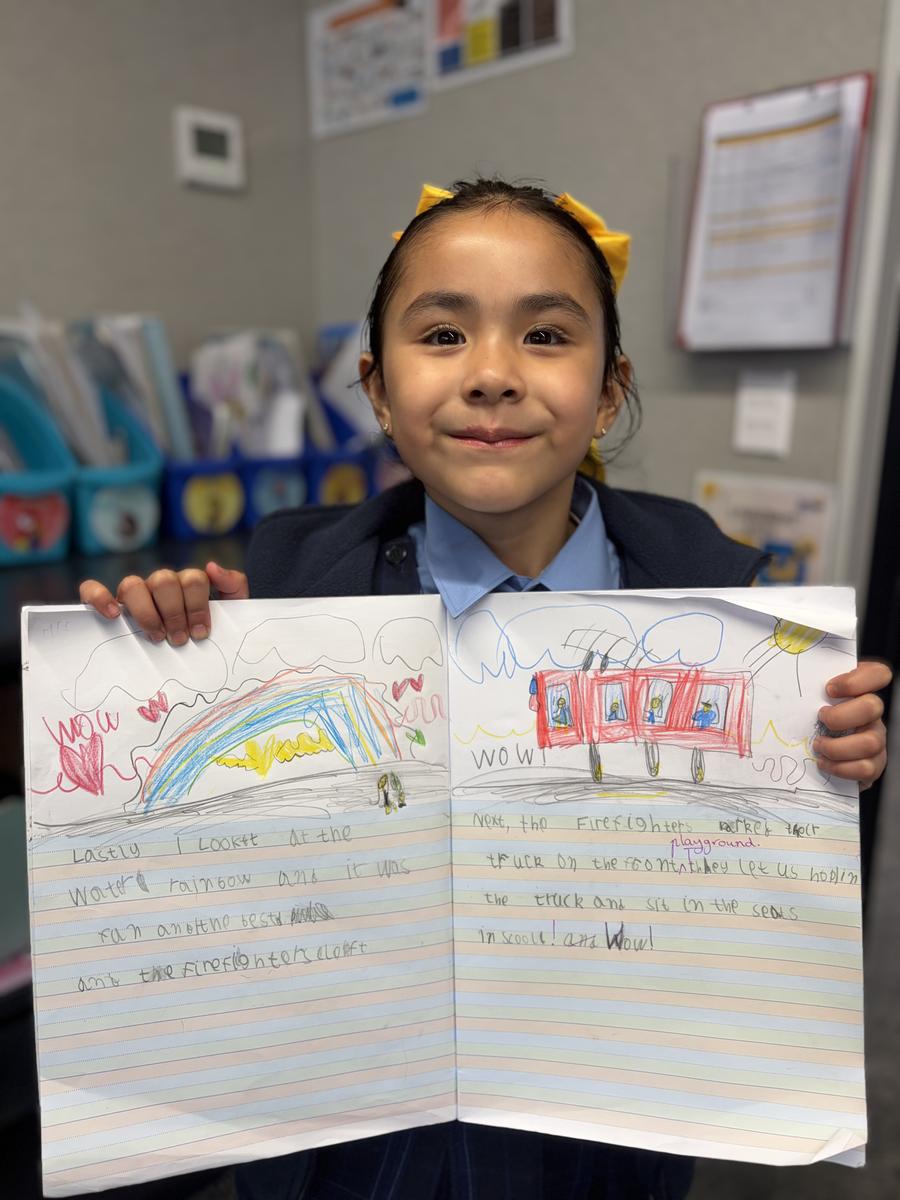 wow
Lastly I Looktt at the
Water rainbow and it was
fan and the best
and the firefighters cloft
WOW!
Next, the Firefighters parked their
playground.
truck on the froont they let us hop in
the truck and sit in the seats
in scool! and Wow!